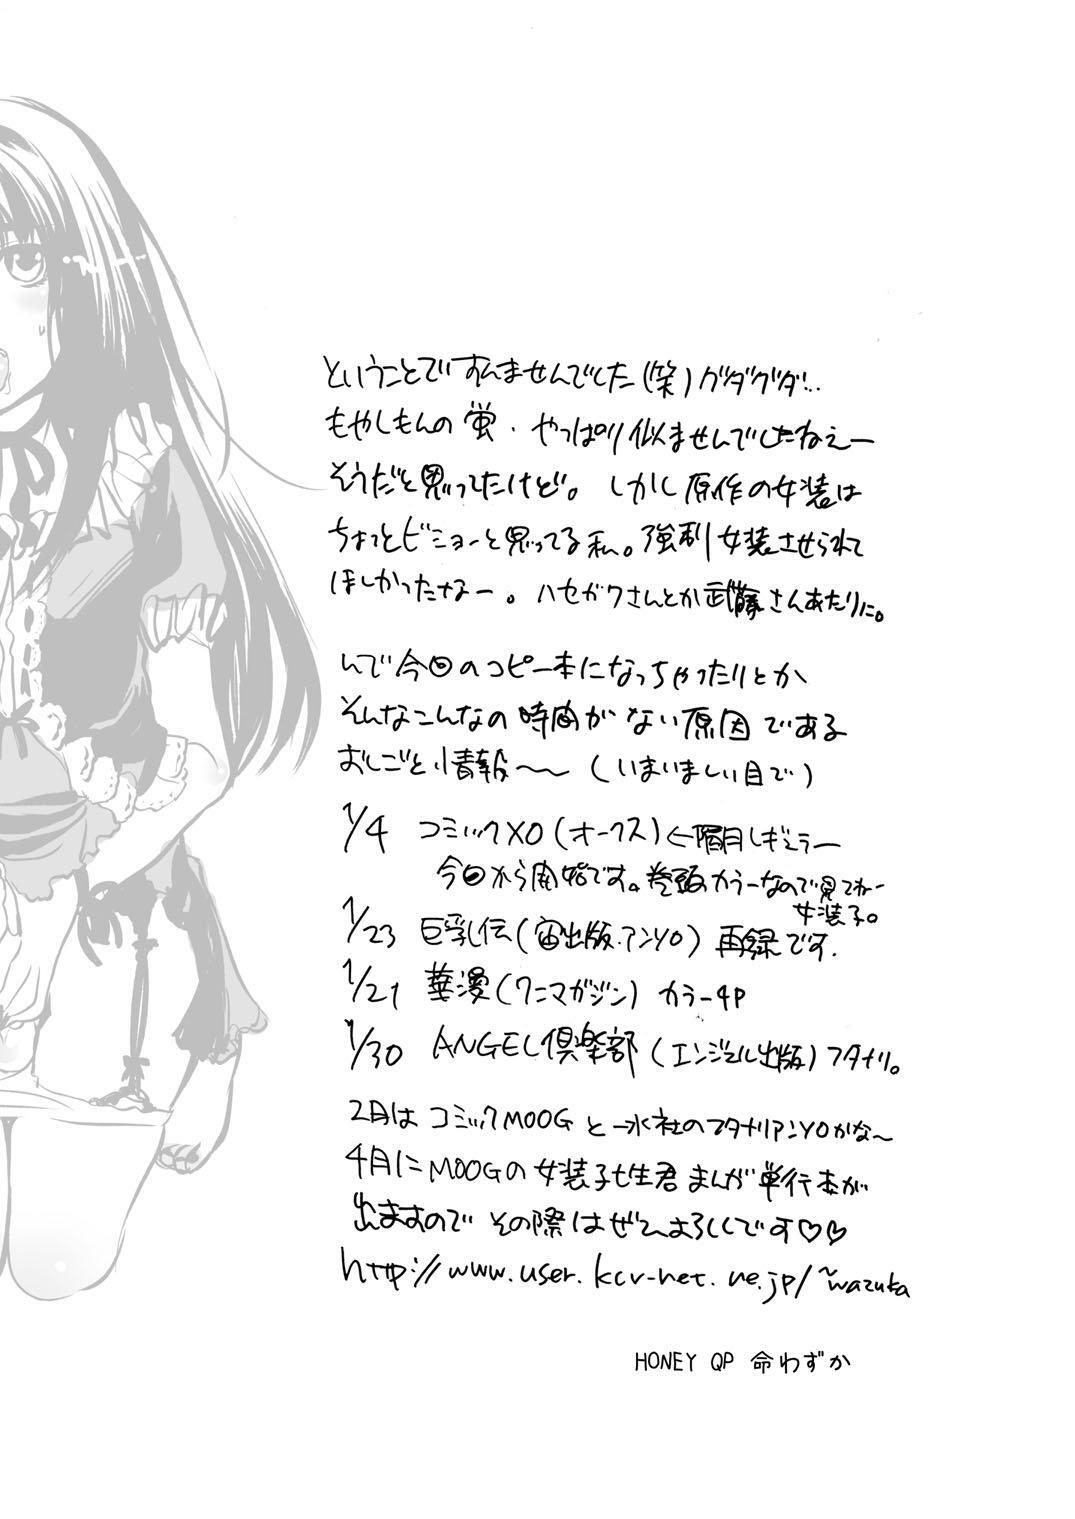 ということですんませんでした(笑)グダグダ…
もやしもんの蛍・やっぱり似ませんでしたねえー
そうだと思ってたけど。しかし原作の女装は
ちょっとビミョーと思ってる私。強制女装させられて
ほしかったなー。ハセガワさんとか武藤さんあたりに。
んで今回のコピー本になっちゃったりとか
そんなこんなの時間がない原因である
おしごと情報〜〜(いまいましい目で)
1/4 コミックXO(オークス)←隔月レギュラー
今回から開始です。巻頭カラーなので見てねー
女装子。
1/23 巨乳伝(宙出版・アンソロ)再録です.
1/21 華漫(ワニマガジン)カラー4P
1/30 ANGEL倶楽部(エンジェル出版)フタナリ。
2月はコミックMOOGと一水社のフタナリアンソロかな〜
4月にMOOGの女装子七生君まんが単行本が
出ますので その際はぜひよろしくです♡♡
http://www.user.kcv-net.ne.jp/~wazuka
HONEY QP 命わずか